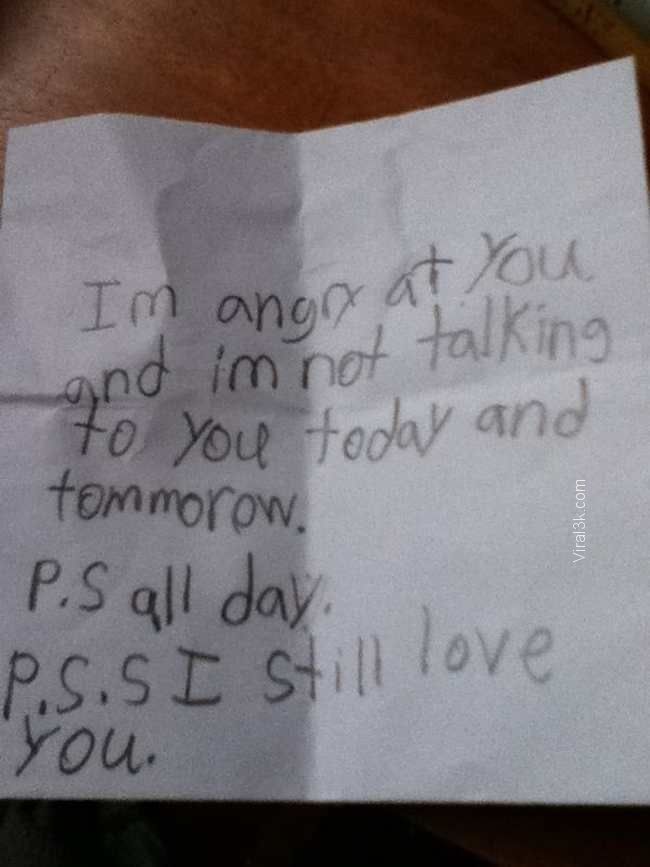 Im angry at you
and im not talking
to you today and
tommorow.
P.S all day.
P.S.S I still love
you.
Viral3k.com